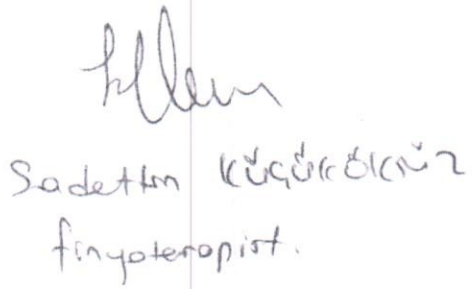 Sadettin KÜÇÜKÖKSÜZ
fizyoterapist.